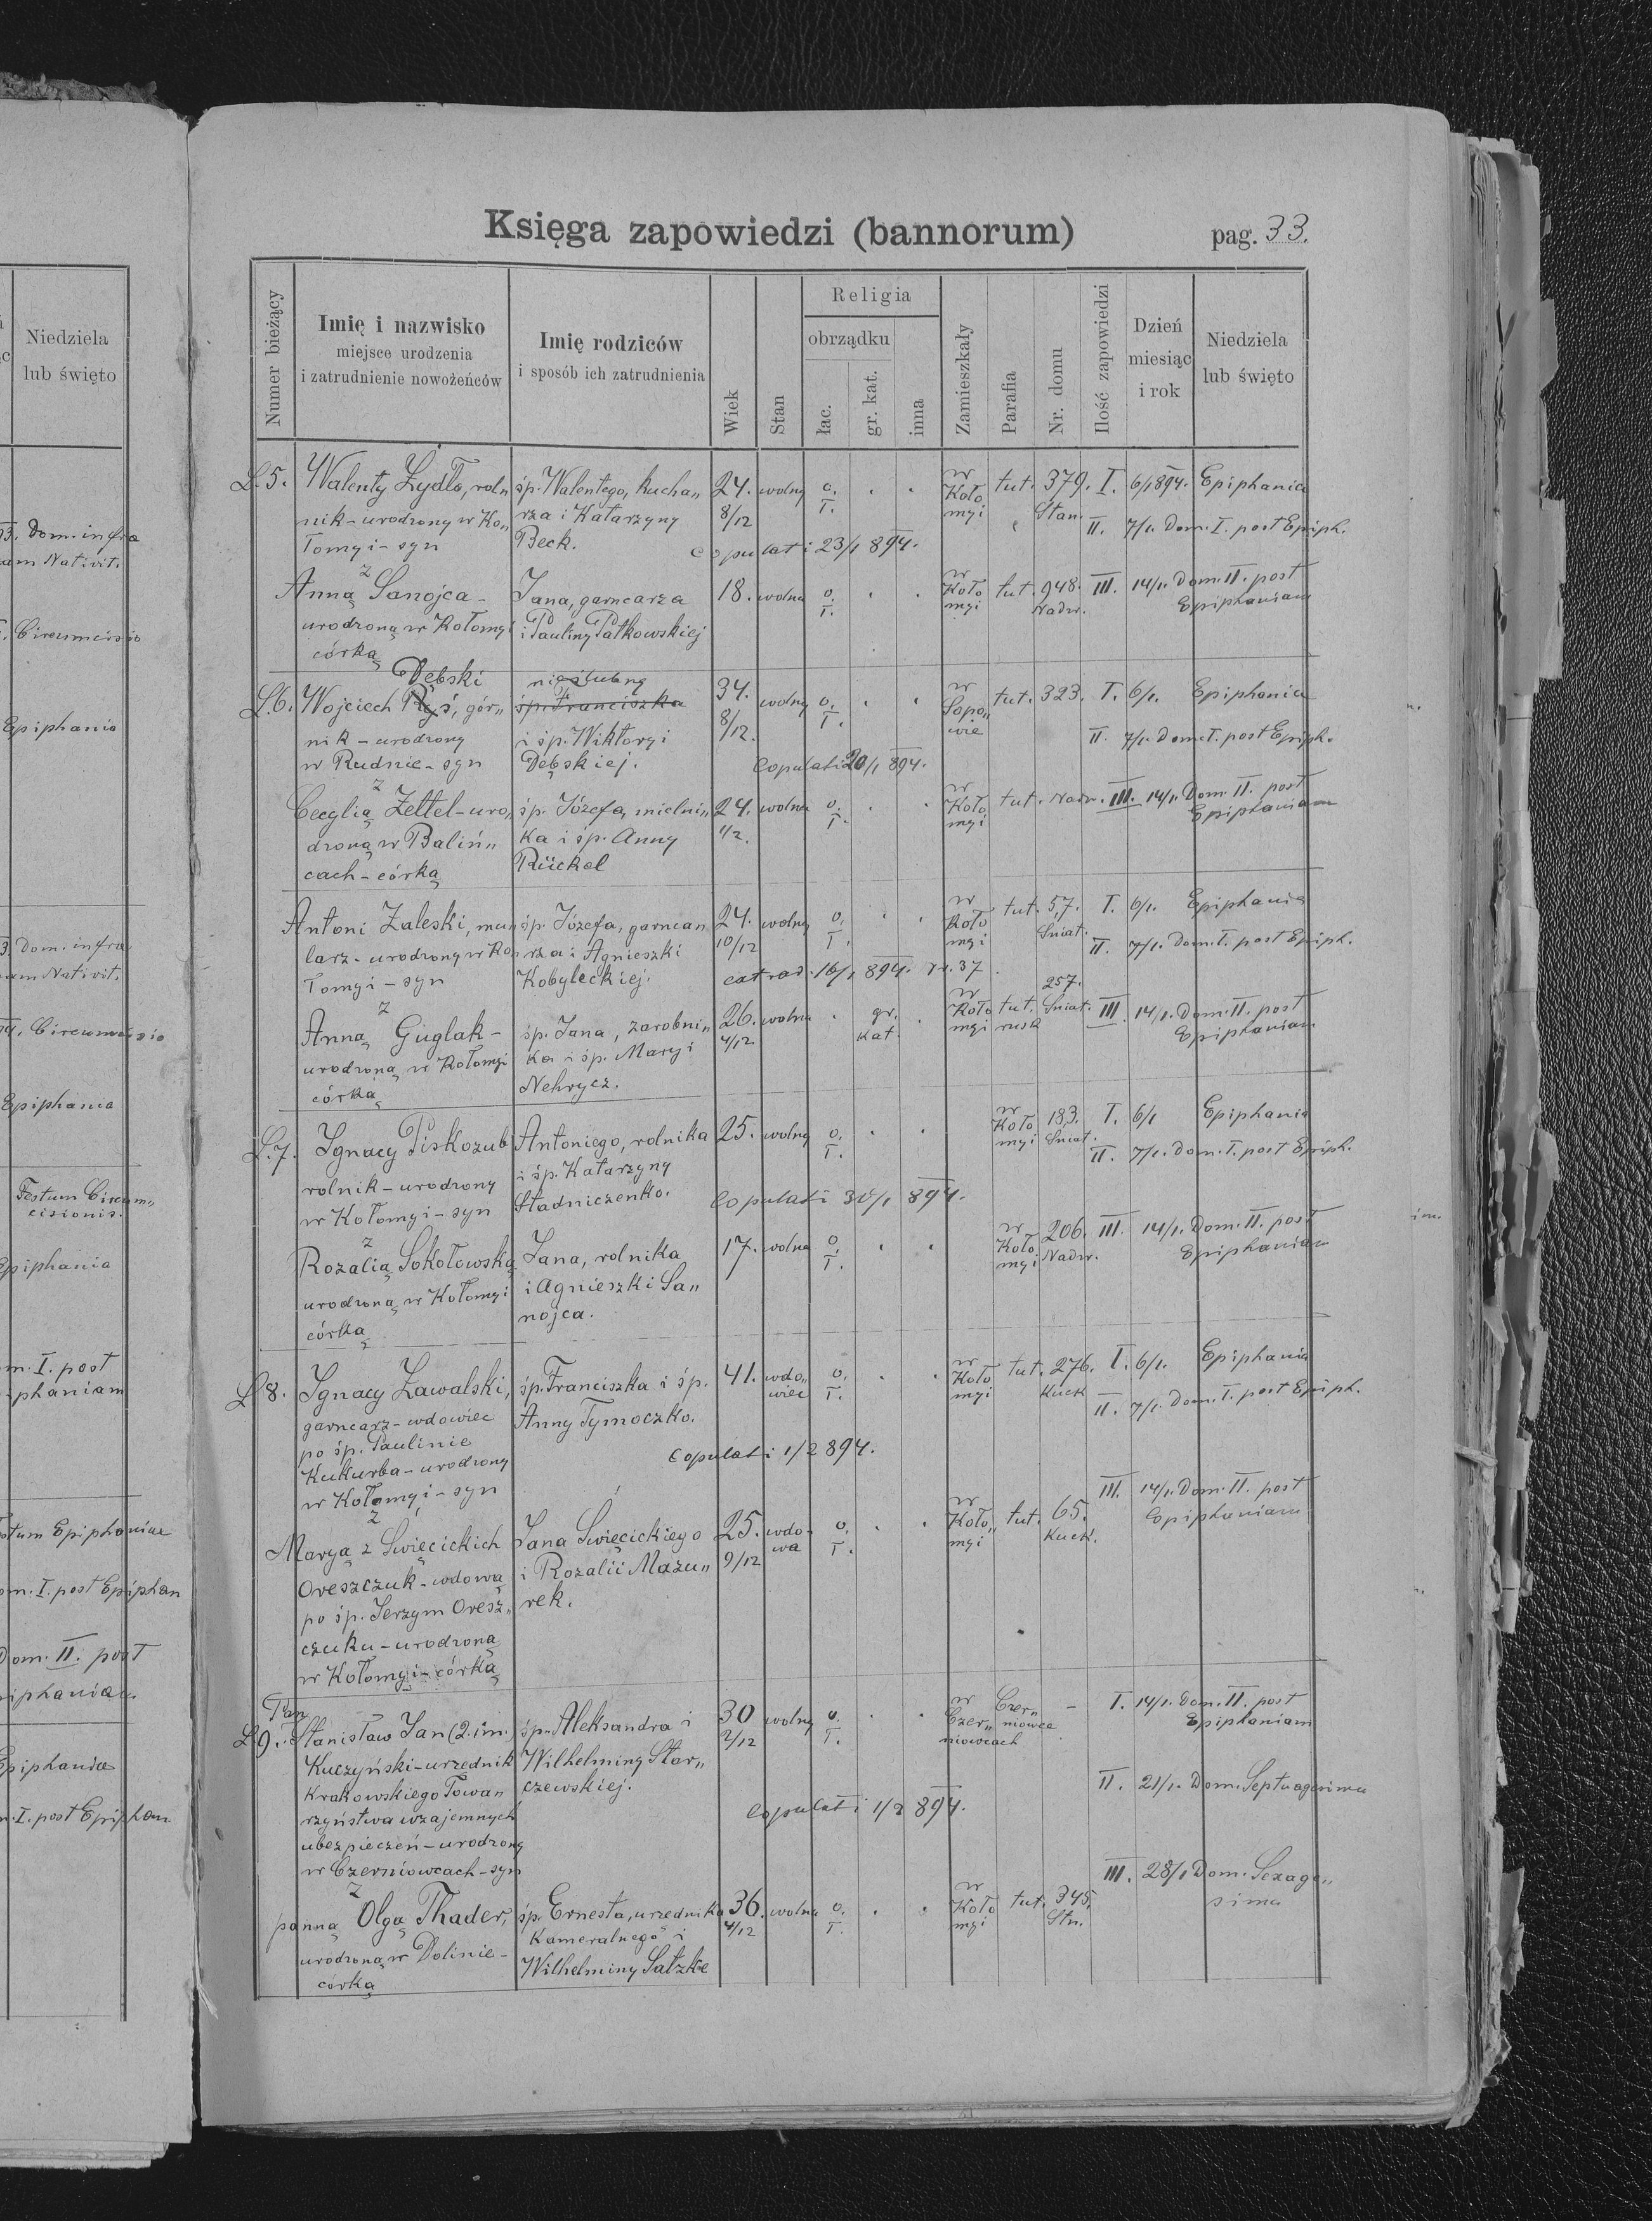 Księga zapowiedzi (bannorum)
pag. 33.
Numer bieżący
Imię i nazwisko
miejsce urodzenia
i zatrudnienie nowożeńców
Imię rodziców
i sposób ich zatrudnienia
Wiek
Stan
Religia
obrządku
łac.
gr. kat.
inna
Zamieszkały
Parafia
Nr. domu
Ilość zapowiedzi
Dzień
miesiąc
i rok
Niedziela
lub święto
L.5. Walenty Żydło, rol„
nik - urodzony w Ko„
łomyi - syn
śp. Walentego, kucha„
rza i Katarzyny
Beck.
24.
8/12
wolny
o.
ł.
w
Koło
myi
tut.
379.
Stan.
I. 6/1 894. Epiphania
II. 7/1. Dom. I. post Epiph.
copulati 23/1 894.
z
Anną Sanojca -
urodzoną w Kołomyi
córką
Jana, garncarza
i Pauliny Patkowskiej
18. wolna
o.
ł.
w
Koło
myi
tut.
948.
Nadw.
III. 14/1. Dom. II. post
Epiphaniam
Dębski
L.6. Wojciech Ryś, gór„
nik - urodzony
w Rudnie - syn
nieślubny
śp. Franciszka
i śp. Wiktoryi
Dębskiej.
34.
8/12.
wolny
o.
ł.
w
Sopo„
wie
tut. 323. I. 6/1. Epiphania
II. 7/1. Dom. I. post Epiph.
Copulati 20/1 894.
z
Cecylią Zettel - uro„
dzoną w Baliń„
cach - córką
śp. Józefa, mielni„
ka i śp. Anny
Rückel
24.
1/2.
wolna
o.
ł.
w
Koło
myi
tut. Nadw. III. 14/1. Dom. II. post
Epiphaniam
Antoni Zaleski, mu„
larz - urodzony w Ko„
łomyi - syn
śp. Józefa, garnca„
rza i Agnieszki
Kobyleckiej.
24.
10/12
wolny
o.
ł.
w
Koło
myi
tut. 57.
Śniat.
I. 6/1. Epiphania
II. 7/1. Dom. I. post Epiph.
extrad. 16/1 894. nr. 37
z
Anną Guglak -
urodzoną w Kołomyi
córką
śp. Jana, zarobni„
ka i śp. Maryi
Nehrycz.
26.
4/12
wolna
gr.
kat.
w
Koło
myi
tut.
rusk
257.
Śniat.
III. 14/1. Dom. II. post
Epiphaniam
L.7. Ignacy Piskozub
rolnik - urodzony
w Kołomyi - syn
Antoniego, rolnika
i śp. Katarzyny
Stadniczenko.
25. wolny
o.
ł.
w
Koło
myi
183.
Śniat.
I. 6/1 Epiphania
II. 7/1. Dom. I. post Epiph.
Copulati 30/1 894.
z
Rozalią Sokołowską
urodzoną w Kołomyi
córką
Jana, rolnika
i Agnieszki Sa„
nojca.
17. wolna
o.
ł.
w
Koło
myi
206.
Nadw.
III. 14/1. Dom. II. post
Epiphaniam
L.8. Ignacy Zawalski,
garncarz - wdowiec
po śp. Paulinie
Kukurba - urodzony
w Kołomyi - syn
śp. Franciszka i śp.
Anny Tymoczko.
41. wdo„
wiec
o.
ł.
w
Koło
myi
tut. 276.
Kuck
I. 6/1. Epiphania
II. 7/1. Dom. I. post Epiph.
Copulati 1/2 894.
z
Maryą z Święcickich
Oreszczuk - wdową
po śp. Jerzym Oresz„
czuku - urodzoną
w Kołomyi - córką
Jana Święcickiego
i Rozalii Mazu„
rek.
25.
9/12
wdo„
wa
o.
ł.
w
Koło„
myi
tut. 65.
Kuck.
III. 14/1. Dom. II. post
Epiphaniam
Pan
L.9. Stanisław Jan (2. im.)
Kuczyński - urzędnik
Krakowskiego Towa„
rzyństwa wzajemnych
ubezpieczeń - urodzony
w Czerniowcach - syn
śp. Aleksandra i
Wilhelminy Star„
czewskiej.
30
2/12
wolny
o.
ł.
w
Czer„
niowcach
Czer„
niowce
-
I. 14/1. Dom. II. post
Epiphaniam
II. 21/1. Dom. Septuagesima
Copulati 1/2 894.
III. 28/1 Dom. Sexage„
sima
z
panną Olgą Thader,
urodzoną w Dolinie -
córką
śp. Ernesta, urzędnika
Kameralnego i
Wilhelminy Satzke
36.
4/12
wolna
o.
ł.
w
Koło
myi
tut. 345.
Stn.
Niedziela
lub święto
Dom. infra
am Nativit.
Circumcisio
Epiphania
Dom. infra
am Nativit.
Circumcisio
Epiphania
Festum Circum„
cisionis.
Epiphania
m. I. post
iphaniam
stum Epiphaniae
om. I. post Epiphan
Dom. II. post
iphaniam
Epiphania
n. I. post Epiphan